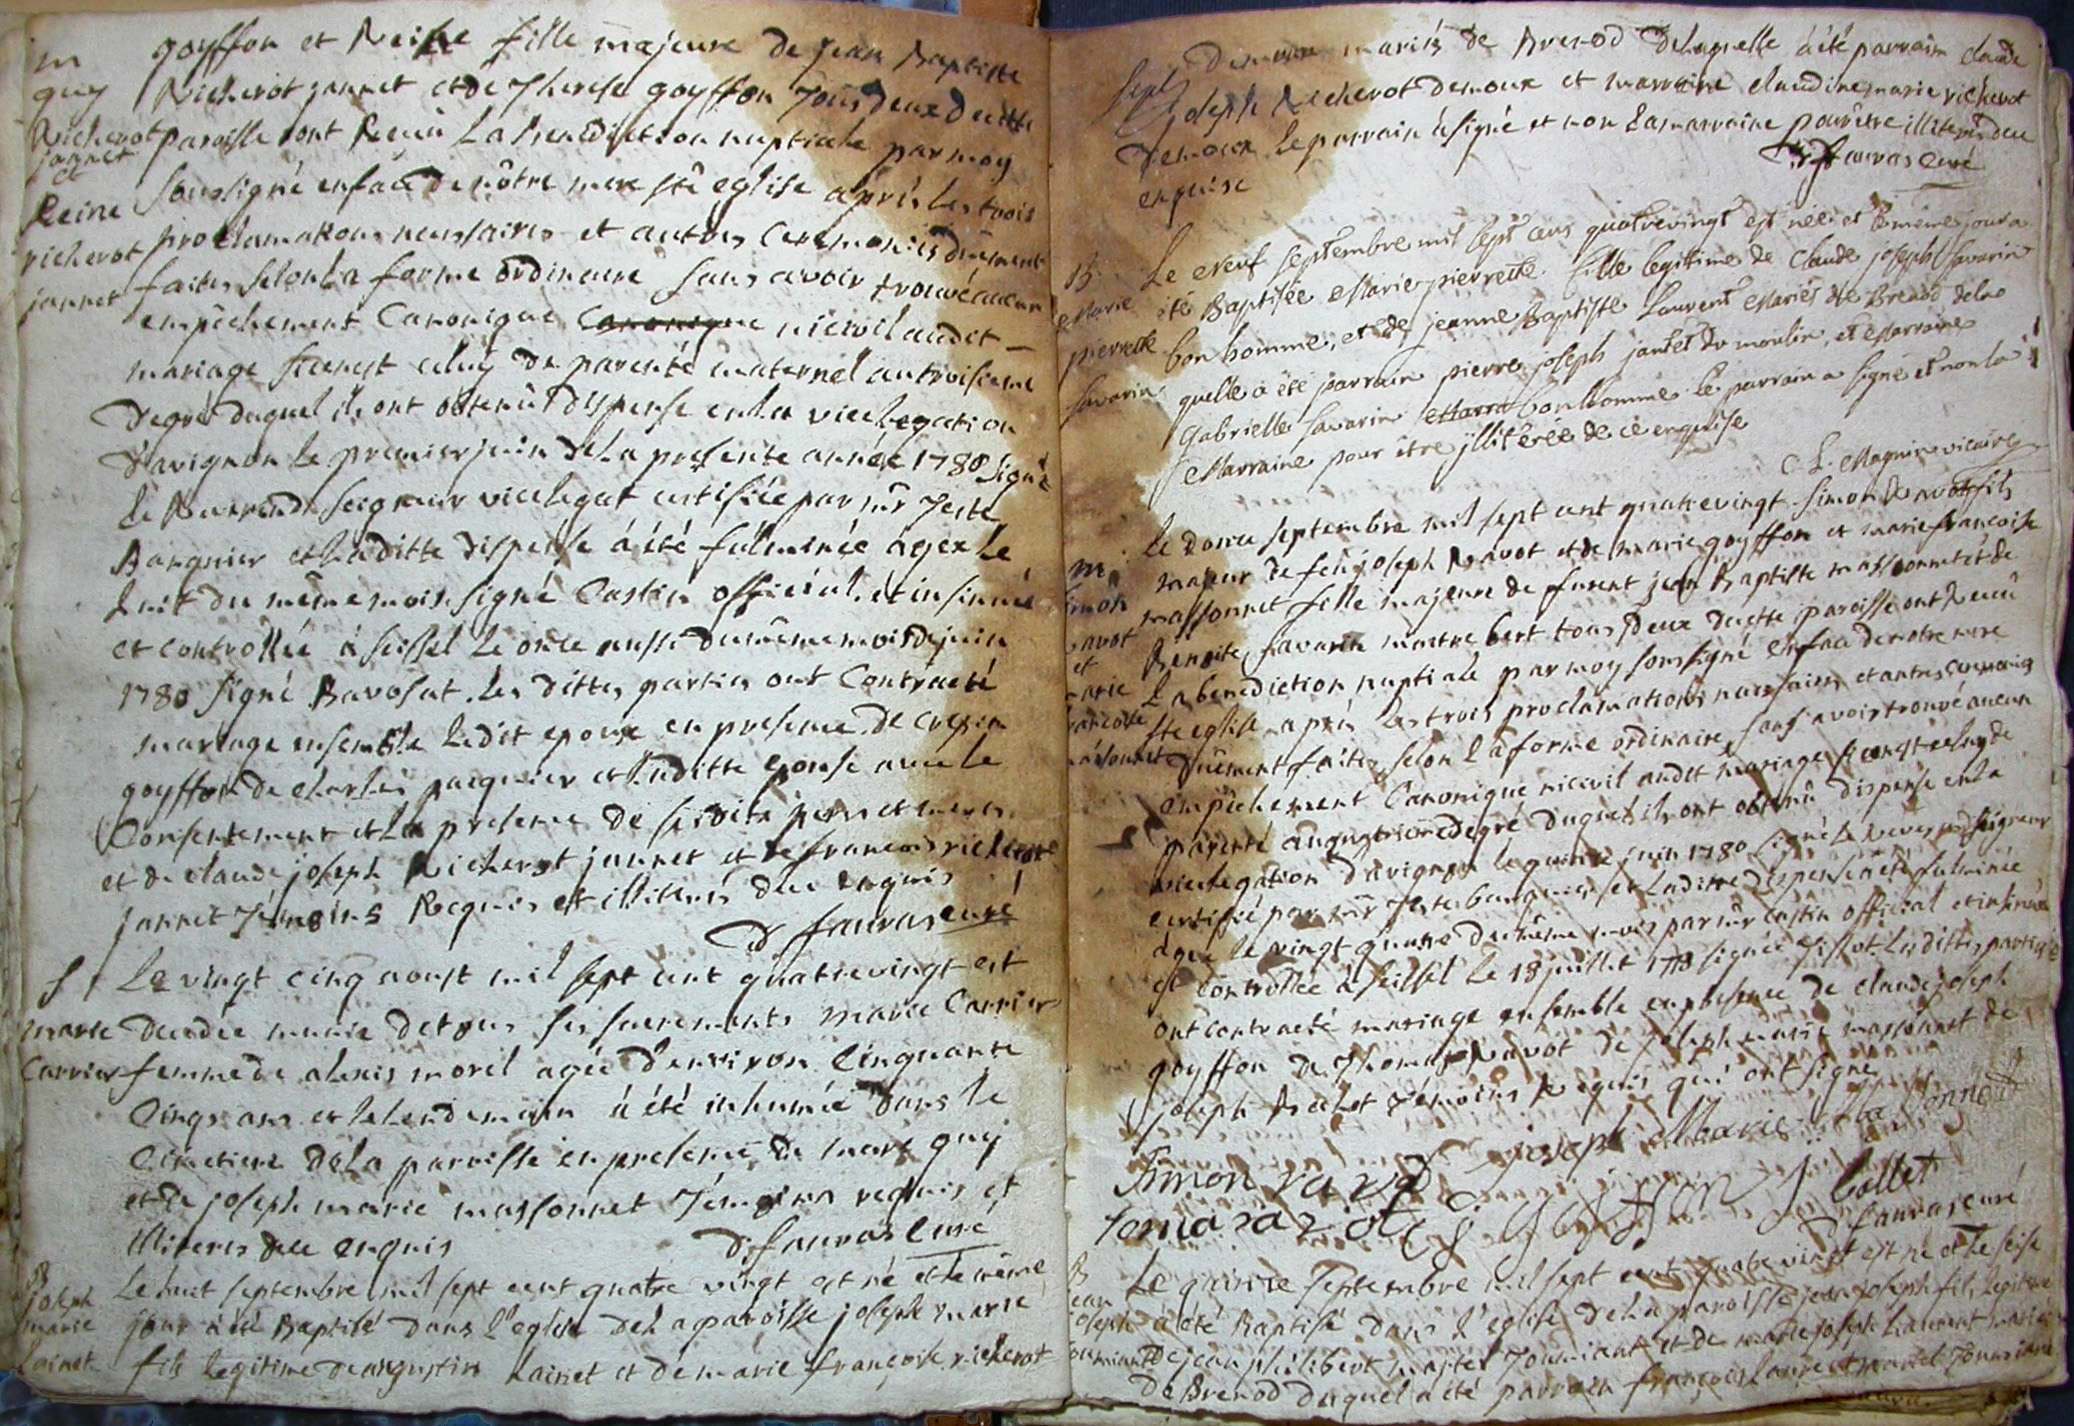 m
guy
Richerot
jannet
et
Reine
richerot
jannet
goyffon et Reine fille majeure de jean Baptiste
Richerot jannet et de Therese goyffon Tous deux de cette
paroisse ont Recu La benediction nuptiale par moy
soussigné en face de nôtre mere ste eglise aprés les trois
proclamations necessaires et autres Ceremonies düement
faites selon la forme ordinaire sans avoir trouvé aucun
empêchement Canonique Canonique ni civil audit
mariage si ce n'est celuy de parenté maternel au troisieme
Degré duquel ils ont obtenû dispense en la vicelegation
d'avignon le premier juin de la presente année 1780 signé
le Reverend seigneur vicelegat certifiée par sûr Teste
Banquier et laditte dispense à été fulminée a gex le
huit du même mois signé Castin official, et insinuée
et controllée à seissel le onze aussi du même mois de juin
1780 signé Bavosat. les dittes parties ont Contracté
mariage ensemble ledit epoux en presence de Crepin
goyffon de charles pacquier et laditte epouse avec le
Consentement et la presence de ses dits peres et meres
et de claude joseph Richerot jannet et de francois richerot
jannet Témoins Requis et illiterés de ce enquis
D favras curé
S
marie
Carrier
Le vingt cinq aoust mil sept cent quatrevingt est
decedée munie de tous ses sacrements marie Carrier
femme de alexis morel agée d'environ Cinquante
Cinqs ans et le lendemain à été inhumée dans le
Cimetiere de La paroisse en presence de marc guy
et de joseph marie massonnet Témoins requis et
illiterés de ce enquis D. favras Curé
B
joseph
marie
Lainet
Le huit septembre mil sept cent quatre vingt est né et le même
jour à été Baptisé dans l'eglise de La paroisse joseph marie
fils legitime de augustin Lainet et de marie françoise richerot
Demeure mariés de Brenod Delaquelle à été parrain claude
joseph Richerot demoux et marraine claudine marie richerot
demoux le parrain à signé et non La marraine pour être illiterée de ce
enquise D. favras curé
B.
Marie
pierrette
Savarin
Le neuf septembre mil sept cens quatrevingt est née et le même jour a
été Baptisée Marie pierrette fille legittime de Claude joseph Savarin
bon homme, et de jeanne Baptiste Laurent Mariés de Brenod de la
quelle a été parrain pierre joseph jantet du moulin, et Marraine
Gabrielle Savarin Marra bonhomme le parrain a signé et non la
Marraine pour être jllitérée de ce enquise
C. L. Magnin vicaire
m.
simon
ravot
et
marie
francoise
massonnet
Le Douze septembre mil sept cent quatrevingt simon Ravot fils
majeur de feu joseph Ravot et de marie goyffon et marie francoise
massonnet fille majeure de furent jean Baptiste massonnet et de
Benoite savarin maitre bert tous deux de cette paroisse ont Recû
La benediction nuptiale par moy soussigné en face de notre mere
ste eglise aprés les trois proclamations necessaires et autres ceremonies
Dûement faites selon La forme ordinaire sans avoir trouvé aucun
empêchement Canonique ni civil audit mariage si ce n'est celuy de
parenté au quatrieme degré duquel ils ont obtenû dispense en la
vicelegation d'avignon le quinze juin 1780 signé le Reverend seigneur
certifié par sûr Teste banquier et laditte dispense a été fulminée
a gex le vingt quatre du même mois par sûr castin official et insinuée
et controllée à seissel le 18 juillet 1780 signée Sissot. les dittes parties
ont contracté mariage ensemble en presence de claude joseph
goyffon de Thomas Ravot de joseph marie massonnet de
joseph Collet Témoins Requis qui ont signé
Simon ravot joseph Marie Massonnet
toma ravot C J goyffon J Collet
D favras curé
B
jean
joseph
Toumiant
Le quinze septembre mil sept cent quatre vingt est né et le seise
à été Baptisé dans l'eglise de La paroisse jean joseph fils legitime
de jean philibert martel Toumiant et de marie joseph Laurent mariés
de Brenod duquel à été parrain françois Laurent martel Toumiant